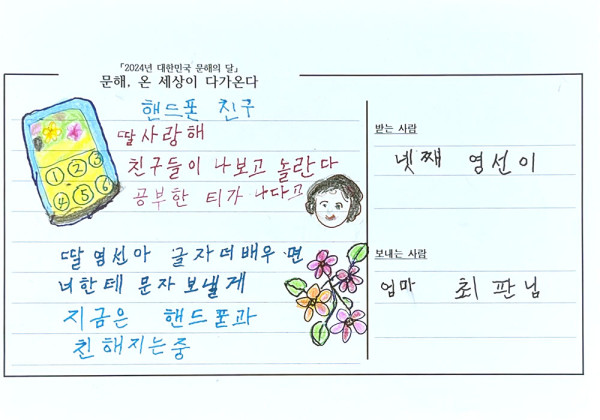 「2024년 대한민국 문해의 달」
문해, 온 세상이 다가온다
핸드폰 친구
딸 사랑해
친구들이 나보고 놀란다
공부한 티가 나다고
딸 영선아 글자 더 배우면
너한테 문자 보낼게
지금은 핸드폰과
친해지는 중
1 2 3
4 5 6
받는 사람
넷째 영선이
보내는 사람
엄마 최판님